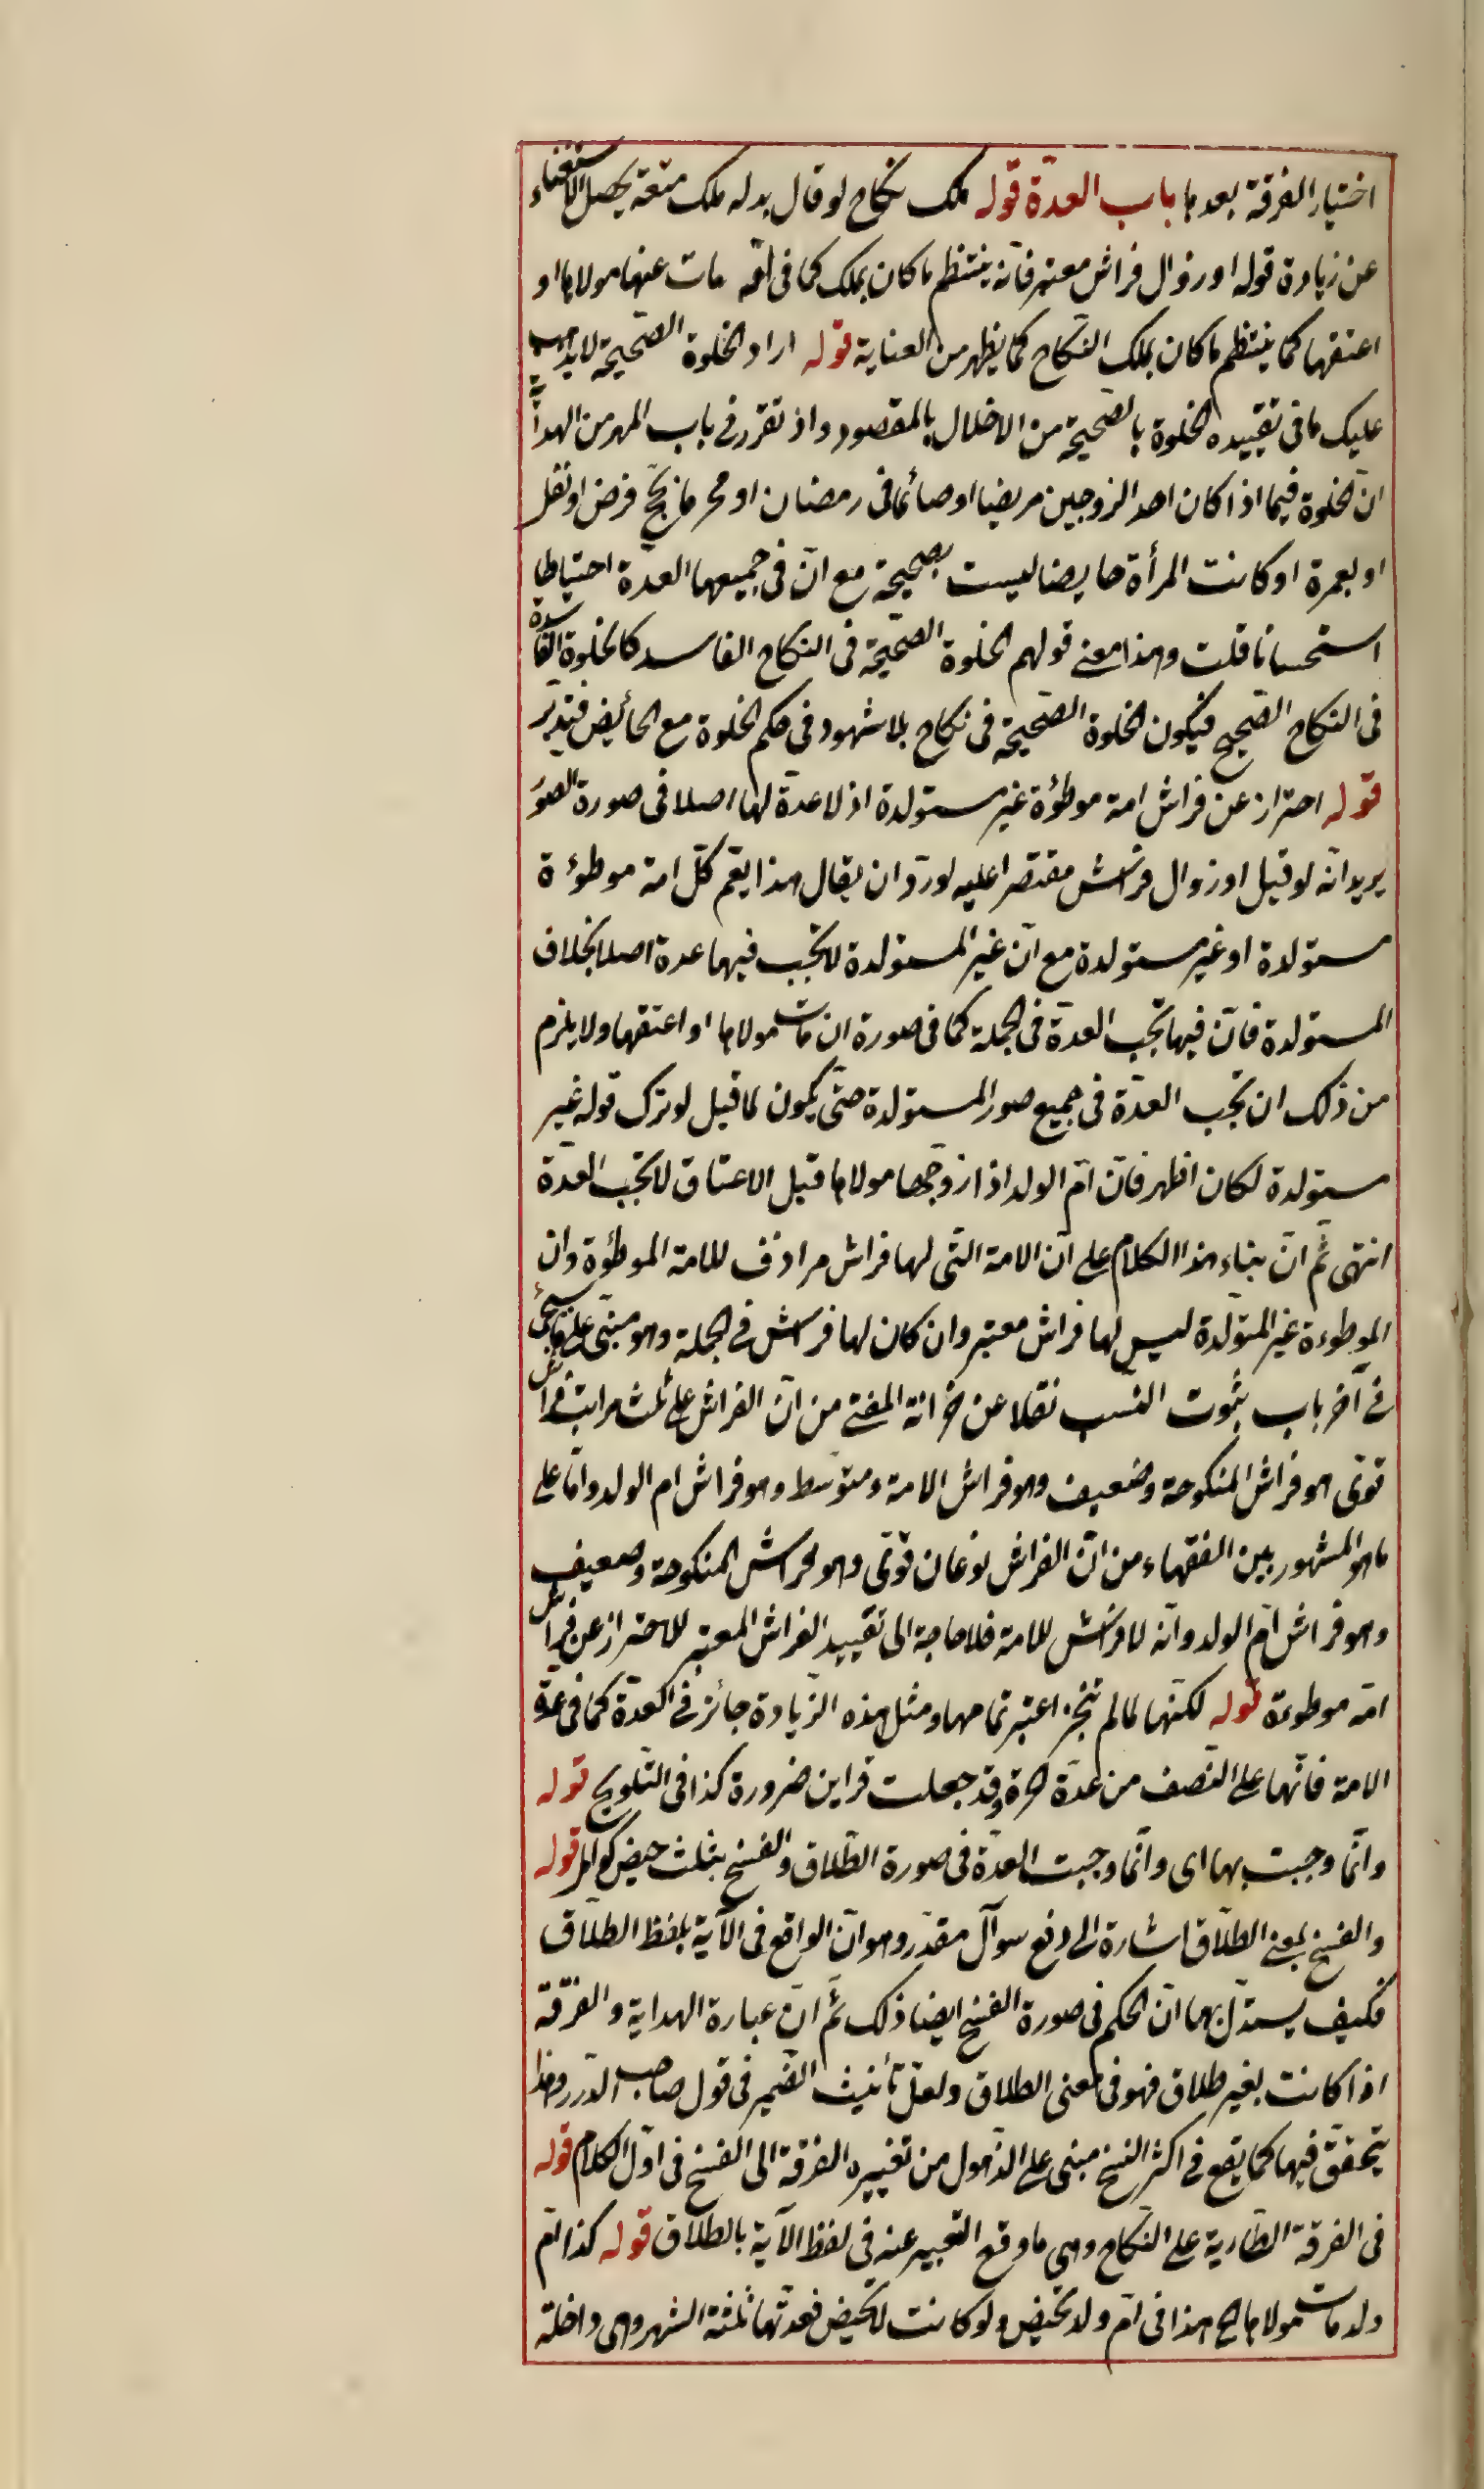 اختيار الفرقة بعدها باب العدّة قوله ملك نكاح لو قال بدله ملك متعة يحصل الاستغناء
عن زيادة قوله او زوال فراش معتبر فانّه ينتظم ما كان بملك كما في امّة مات عنها مولاها او
اعتقها كما ينتظم ما كان بملك النكاح كما يظهر من العناية قوله اراد الخلوة الصّحيحة لا يذهب
عليك ما في تقييده الخلوة بالصّحيحة من الاخلال بالمقصود واذ تقرر في باب المهر من الهداية
انّ الخلوة فيما اذا كان احد الزوجين مريضا او صائما في رمضان او محرما بحجّ فرض او نفل
او بعمرة او كانت المرأة حايضا ليست بصحيحة مع انّ في جميعها العدّة احتياطا
استحسانا قلت وهذا معنى قولهم الخلوة الصّحيحة في النكاح الفاسد كالخلوة الفاسدة
في النكاح الصّحيح فيكون الخلوة الصّحيحة في نكاح بلا شهود في حكم الخلوة مع الحائض فتدبّر
قوله احتراز عن فراش امة موطؤة غير مستولدة اذ لا عدّة لها اصلا في صورة الصوَر
يريد انّه لو قيل او زوال فراش مقتصرا عليه لورد ان يقال هذا يعّم كلّ امة موطوءة
مستولدة او غير مستولدة مع انّ غير المستولدة لا تجب فيها عدة اصلا بخلاف
المستولدة فانّ فيها تجب العدّة في الجملة كما في صورة ان مات مولاها او اعتقها ولا يلزم
من ذلك ان تجب العدّة في جميع صور المستولدة حتّى يكون لما قيل لو ترك قوله غير
مستولدة لكان اظهر فانّ امّ الولد اذا زوّجها مولاها قبل الاعتاق لا تجب العدّة
انتهى ثمّ انّ بناء هذا الكلام على انّ الامة التّى لها فراش مرادف للامة الموطؤة وان
الموطوءة غير المستولدة ليس لها فراش معتبر وان كان لها فراش في الجملة وهو مبنّى على ما سيجئ
في آخر باب ثبوت النّسب نقلا عن خزانة المفتي من انّ الفراش على ثلث مراتب فراش
قوىّ هو فراش المنكوحة وضعيف وهو فراش الامة ومتوسّط وهو فراش ام الولد وامّا على
ما هو المشهور بين الفقهاء من انّ الفراش نوعان قوىّ وهو فراش المنكوحة وضعيف
وهو فراش امّ الولد وانّه لا فراش للامة فلا حاجة الى تقييد الفراش المعتبر للاحتراز عن فراش
امّة موطوئة قوله لكنّها لمّا لم تتجز اعتبر تمامها ومثل هذه الزّيادة جائز في العدّة كما في عدّة
الامة فانّها على النّصف من عدّة الحرة وقد جعلت قراين ضرورة كذا في التّلويح قوله
وانّما وجبت بها اى وانّما وجبت العدّة في صورة الطّلاق والفسخ بثلث حيض كوامل قوله
والفسخ بمعنى الطلّاق اشارة الى دفع سوآل مقدّر وهو انّ الواقع في الآية بلفظ الطلّاق
فكيف يستدلّ بها انّ الحكم في صورة الفسخ ايضا ذلك ثمّ انّ عبارة الهداية والفرقة
اذا كانت بغير طلاق فهو في معنى الطلاق ولعلّ تأنيث الضّمير في قول صاحب الدّرر وهذا
يتحقّق فيها كما يقع في اكثر النسخ مبنى على الذّهول من تغييره الفرقة الى الفسخ في اوّل الكلام قوله
في الفرقة الطّارية على النّكاح وهي ما وقع التّعبير عنه في لفظ الآية بالطلاق قوله كذا امّ
ولد مات مولاها الخ هذا في امّ ولد تحيض ولو كانت لا تحيض فعدّتها ثلثة اشهر وهي داخلة